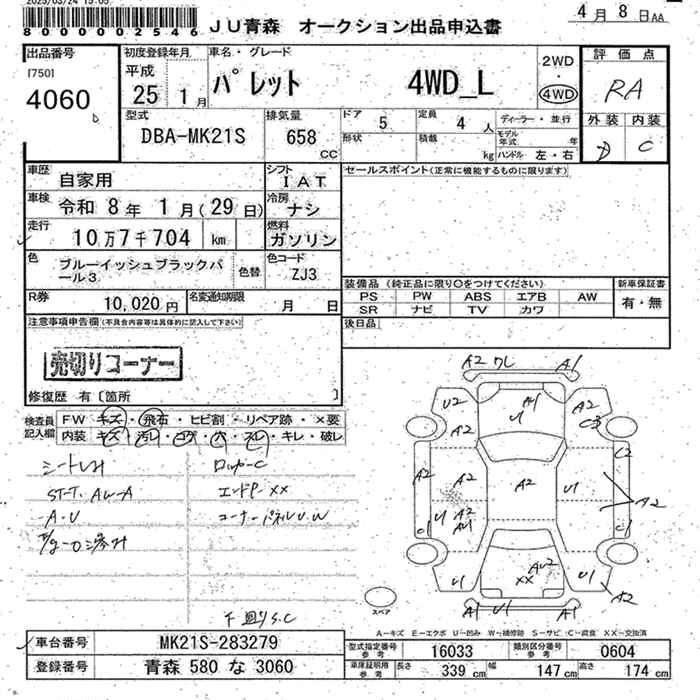 2025/03/24 15:05
8000002546
JU青森 オークション出品申込書
4月8日AA
出品番号
[750]
4060
初度登録年月
平成
25 1月
車名・グレード
パレット 4WD_L
2WD
4WD
評価点
RA
外装 内装
C
型式
DBA-MK21S
排気量
658
CC
ドア 5
定員 4人
形状
積載 kg
ディーラー・並行
モデル年式 年
ハンドル 左・右
車歴
自家用
シフト
IAT
セールスポイント(正常に機能するものに限ります)
車検
令和 8年 1月(29日)
冷房
ナシ
走行
10万7千704 km
燃料
ガソリン
色
ブルーイッシュブラックパール3
色替
色コード
ZJ3
装備品 (純正品に限り○をつけてください)
PS PW ABS エアB AW
SR ナビ TV カワ
新車保証書
有・無
R券 10,020円
名変通知期限 月 日
後日品
注意事項申告欄(不具合内容等は具体的に記入して下さい)
売切りコーナー
修復歴 有〔箇所 〕
検査員記入欄
FW キズ・飛石・ヒビ割・リペア跡・×要
内装 キズ・汚レ・コゲ・穴・スレ・キレ・破レ
ロッカーC
エンドP XX
コーナーパネルU.W
下廻りS.C
A2 ワレ A1
U2 A1 U A2
A2 C3
A2 A2 A2 U1 C2
U A2 A2
C1 C1
U1 XX U1 A2
A1 U1 A1
スペア
A-キズ E-エクボ U-凹み W-補修跡 S-サビ C-腐食 XX-交換済
車台番号 MK21S-283279
登録番号 青森 580 な 3060
型式指定番号 参考 16033
類別区分番号 参考 0604
車庫証明用 参考 長さ 339cm 幅 147cm 高さ 174cm